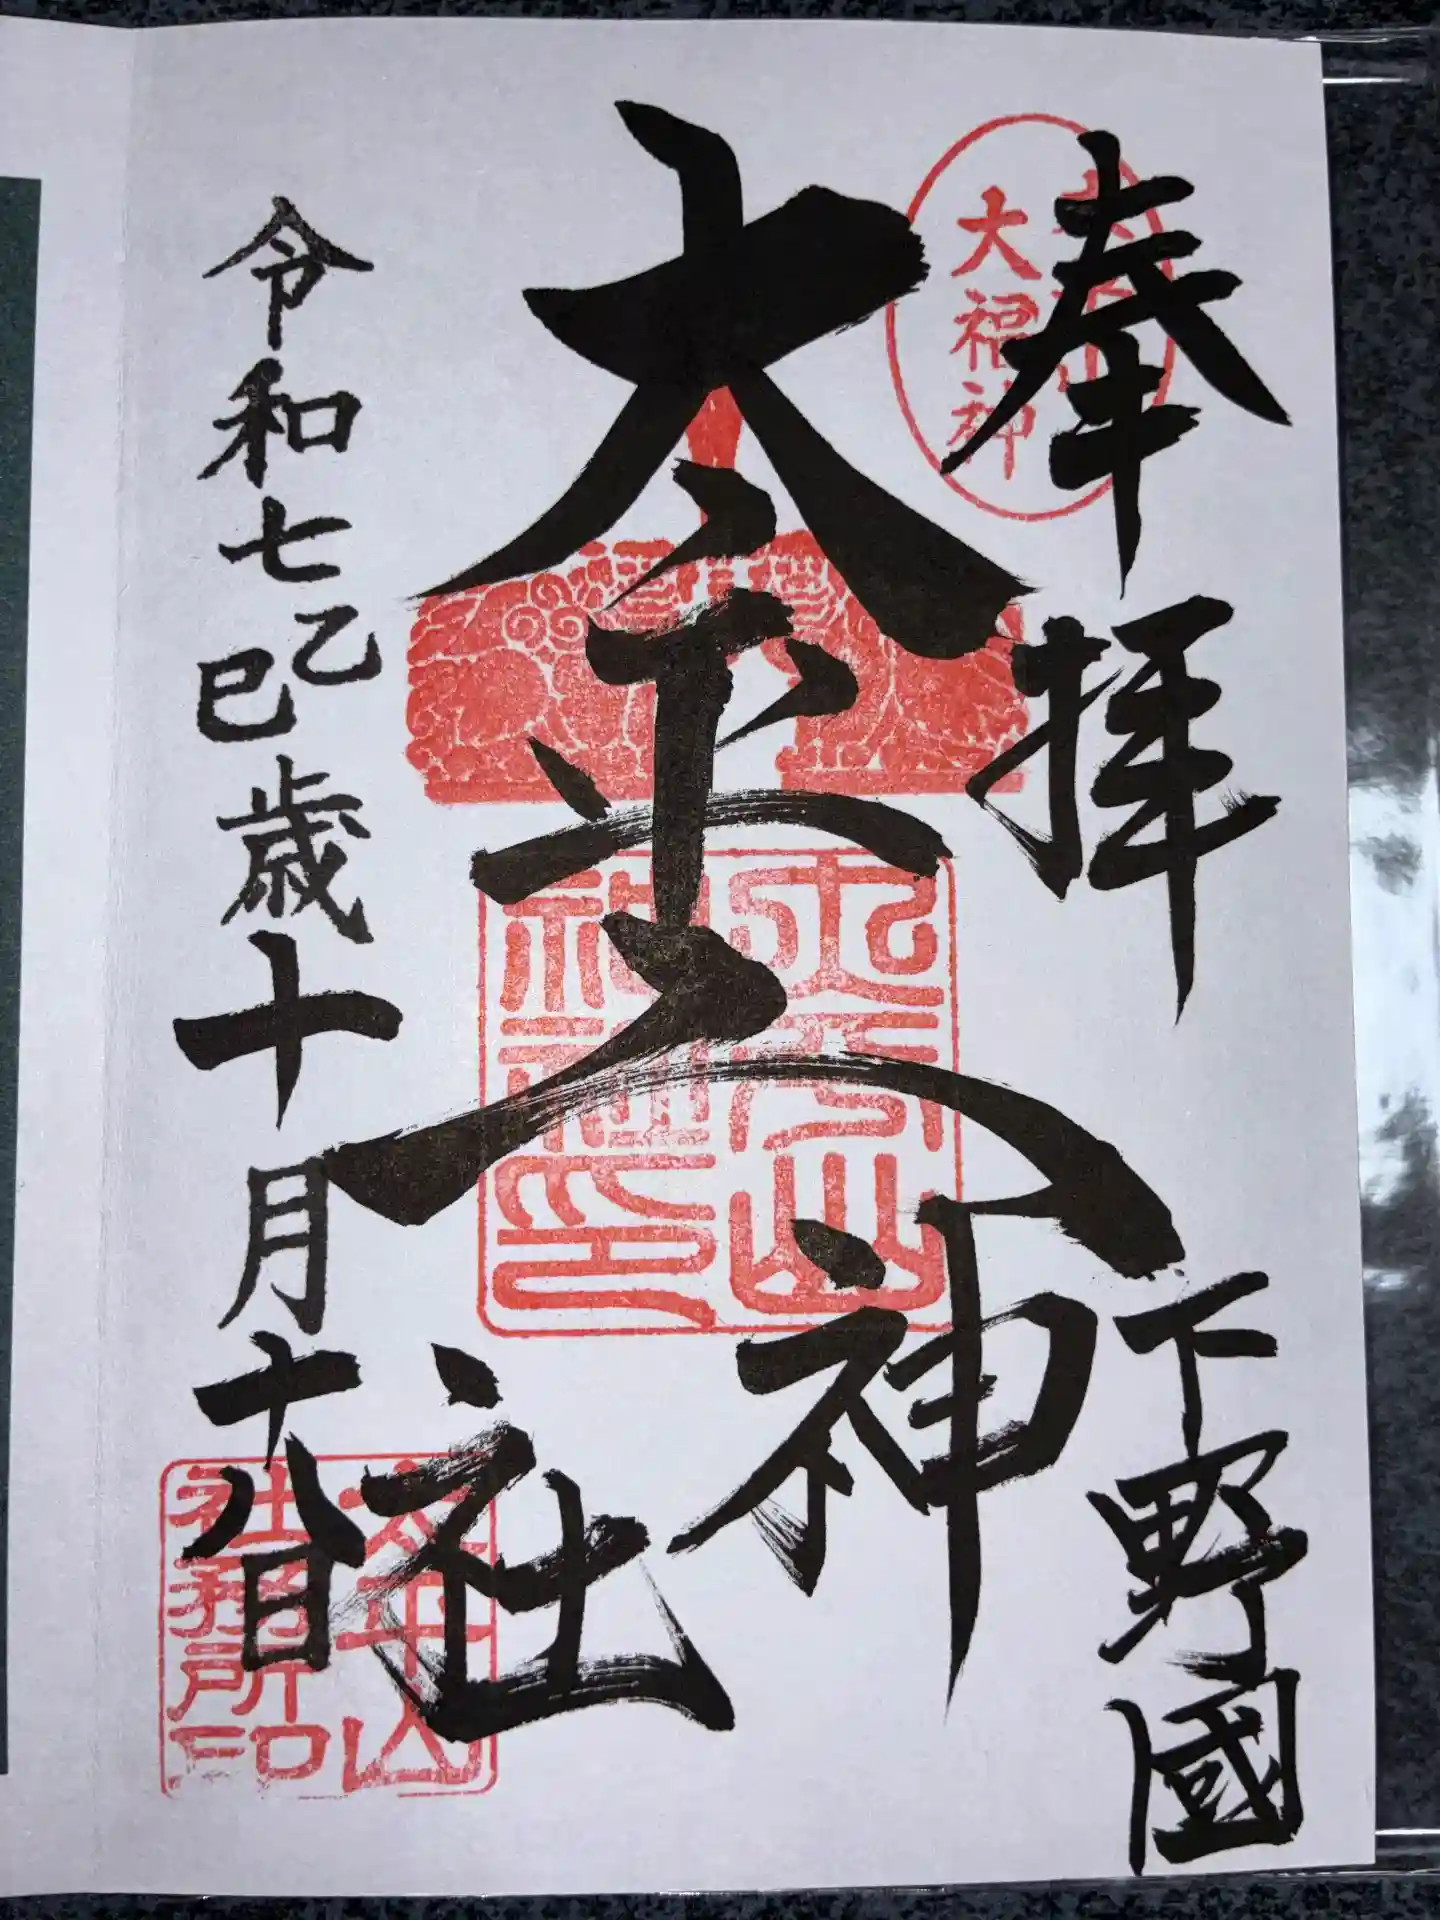 奉拝
下野國
太平山神社
令和七乙巳歳十月十八日
大福神
太平山神社印
太平山社務所印